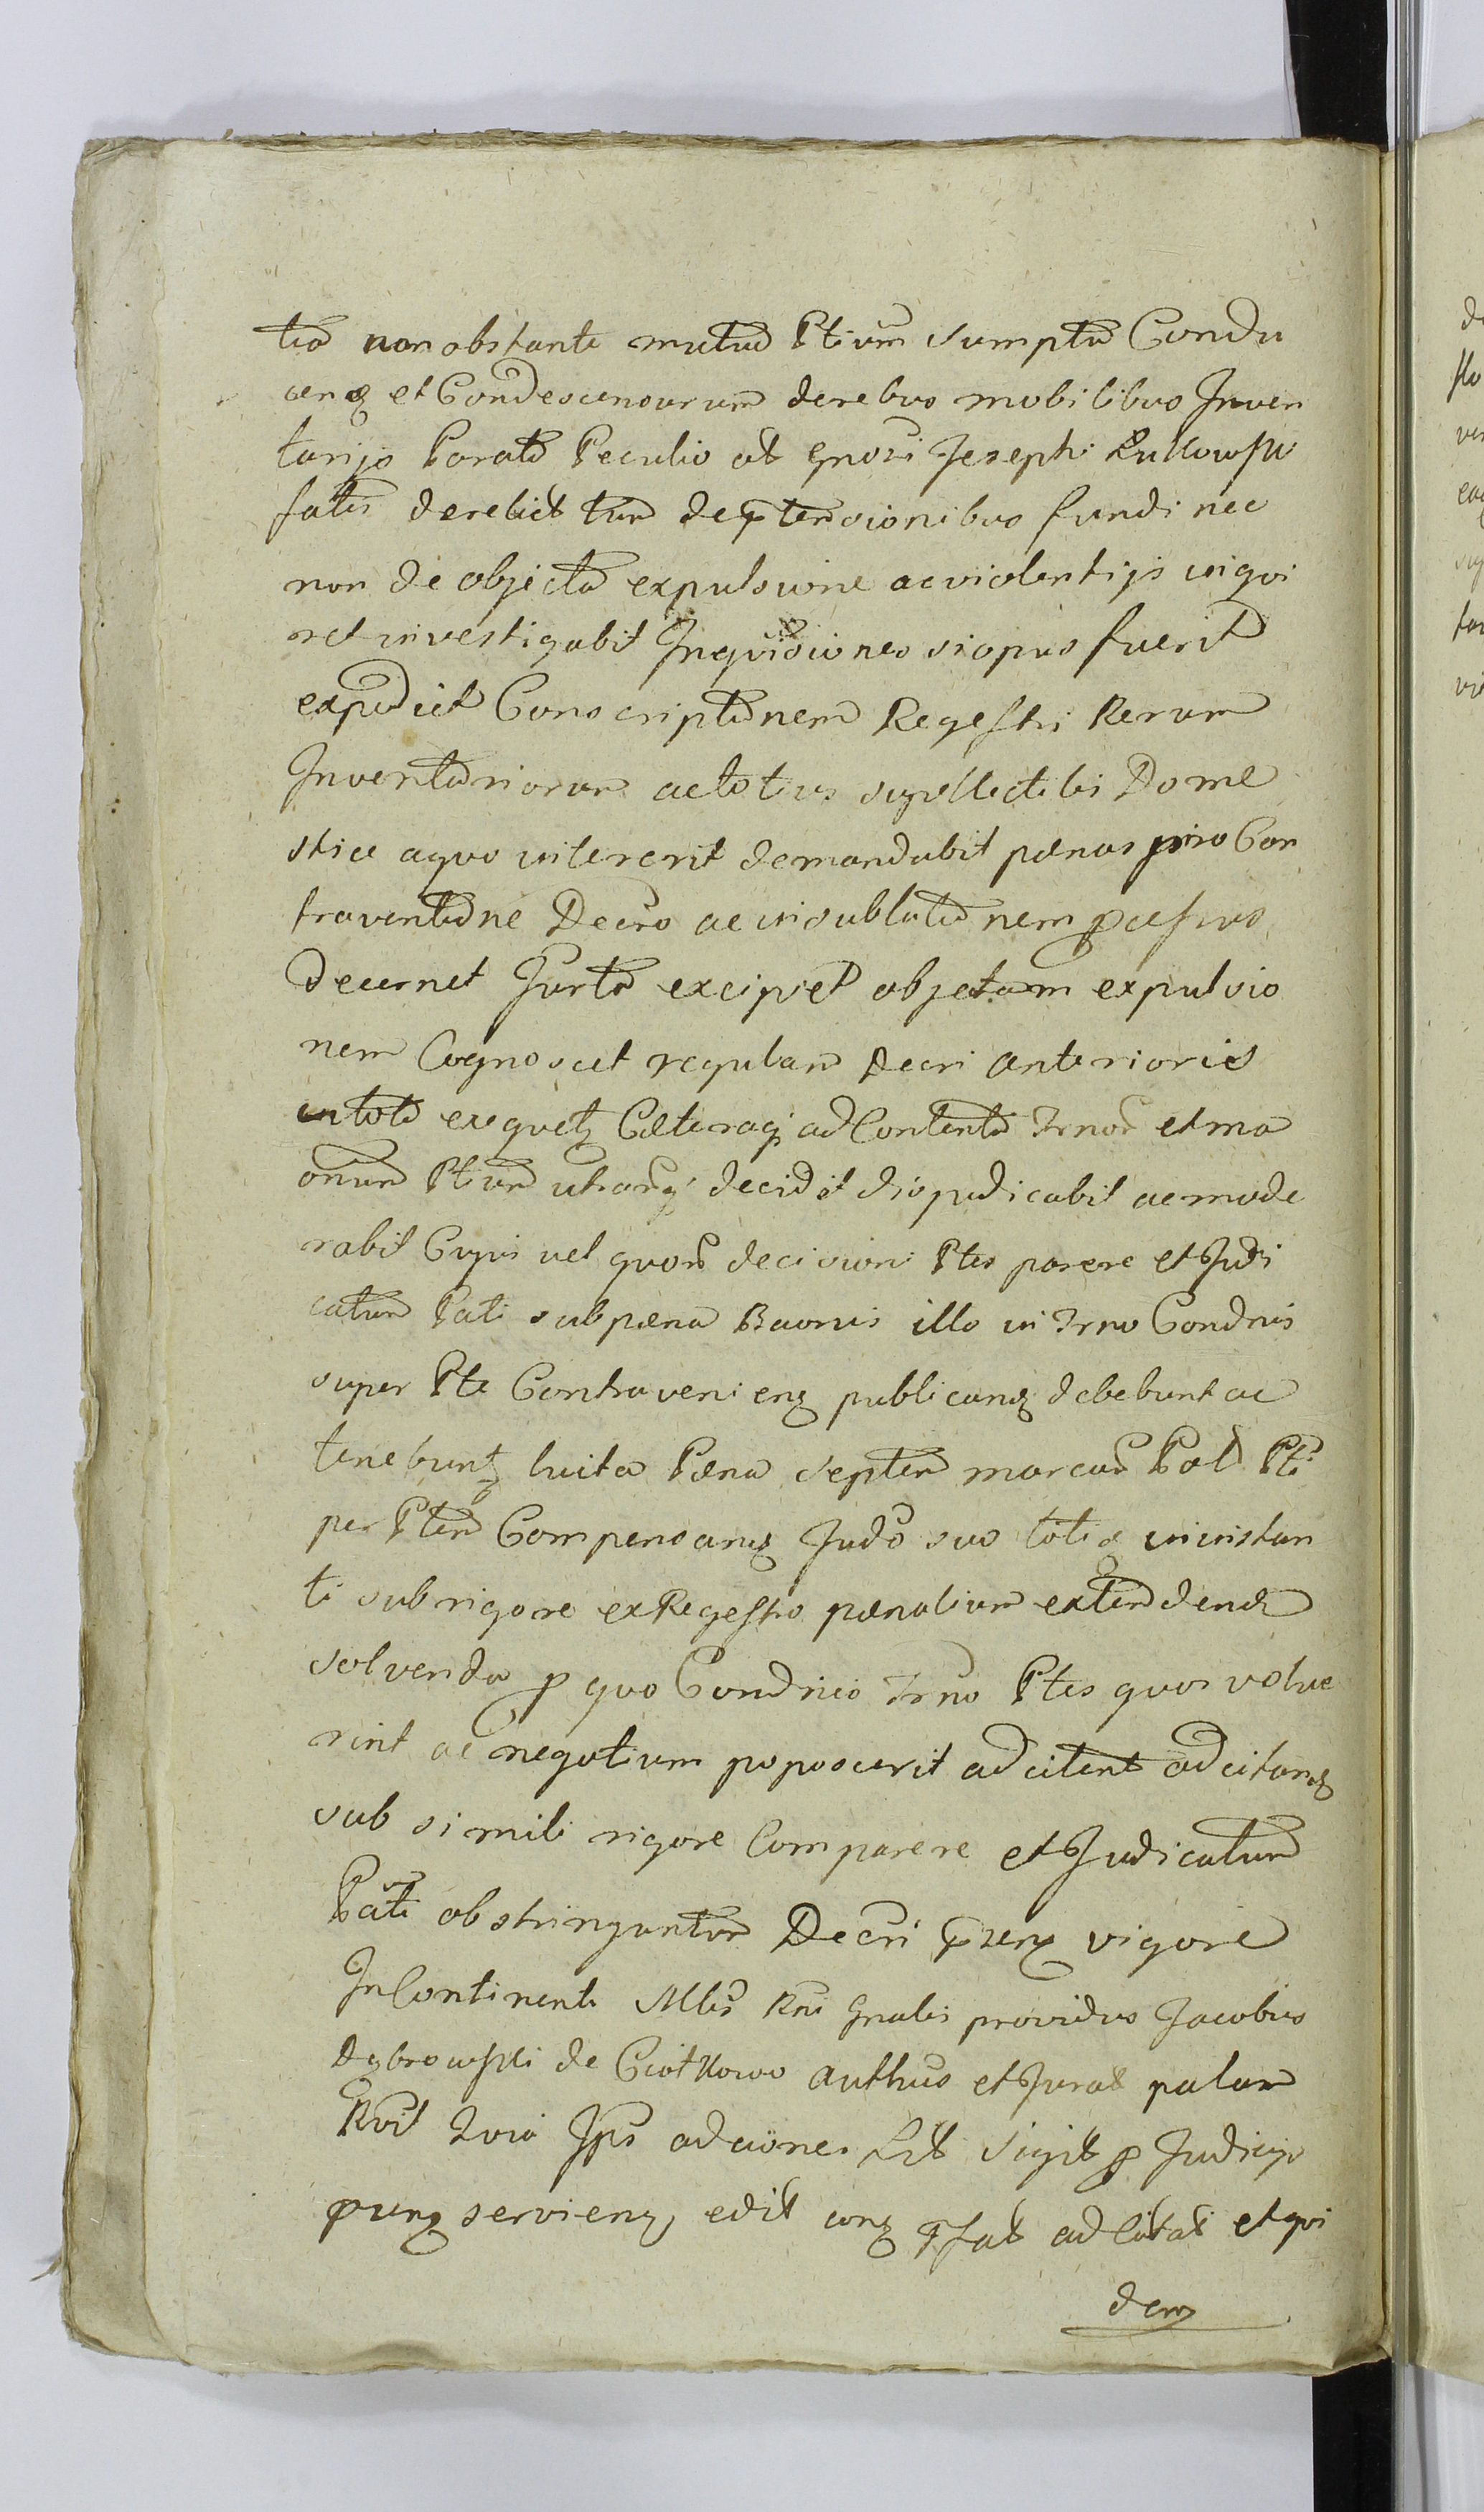 tia non obstante mutuo Ptium sumptu Condu
cen et Condescensurum de rebus mobilibus Inven
tarijs Parato Peculio ab Gnosi Josephi Rutkowski
fatis derelict tum de prtensionibus fundi nec
non de objecta expulsione ac violentijs inqui
ret investigabit Inquisiones si opus fuerit
expediet Conscriptionem Regestri Rerum
Inventariorum ac totius supellectilis Dome
stice a quo intererit demandabit pænas pro Con
traventione Decro ac in sublationem pcessus
decernet Jurta excipiet objectam expulsio
nem Cognoscet regulam Decri anterioris
in toto exequet Cæteraq ad Contenta Trnor et ma
onum Ptium utrarq decidet disjudicabit ac mode
rabit Cujus vel quor decisioni Ptes parere et Judi
catum Pati sub pæna Baonis illo in Trno Condnis
super Pte Contravenien publican debebunt ac
tenebunt luita Pæna septem marcar Pol Pti
per Ptem Compensan Judo suo toties in instan
ti sub rigore ex Regestro pænalium extendend
solvenda p quo Condnio Trno Ptes quos volue
rint ac negotium poposcerit adcitent adcitan
sub simili rigore Comparere et Judicatum
Pati obstringuntur Decri pnzen vigore
In Continenti Mtis Rni Gnalis providus Jacobus
Dąbrowski de Ciotkowo authus et Jurat palam
Rvit Quia Ips adciones Lit
pun servien edit ad et qui
den